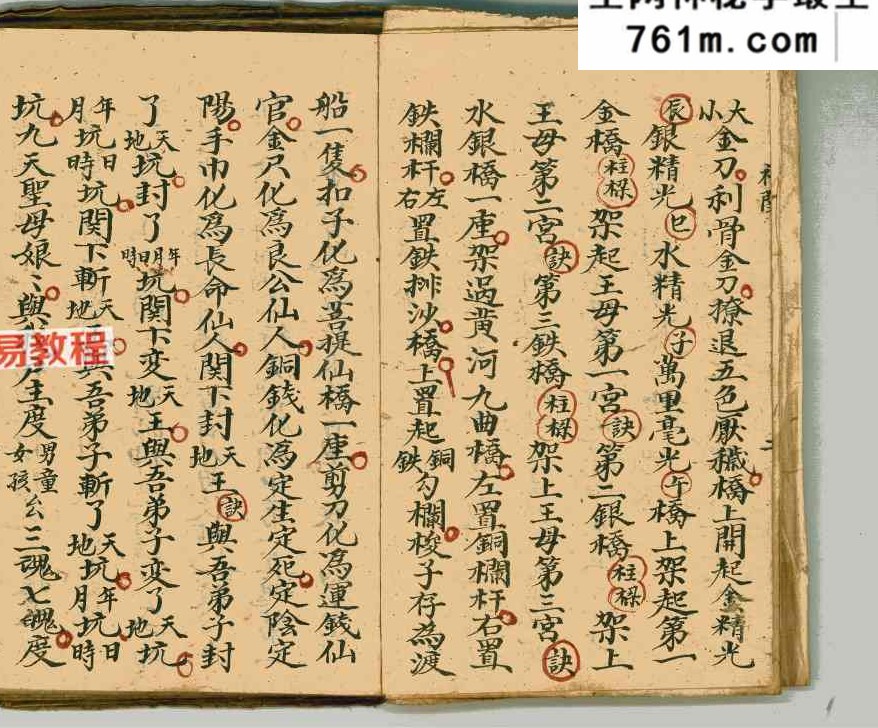 761m.com
大小金刀利骨金刀撩退五色厭穢橋上開起金精光
辰銀精光巳水精光子萬里毫光午橋上架起第一
金橋柱椂架起王母第一宮訣第二銀橋柱椂架上
王母第二宮訣第三鉄橋柱椂架上王母第三宮訣
水銀橋一座架過黄河九曲橋左置銅欄杆右置
鉄欄杆左右置鉄排沙橋上置起銅鉄勾欄梭子存為渡
船一隻扣子化為菩提仙橋一座剪刀化為運錢仙
官金尺化為良公仙人銅錢化為定生定死定陰定
陽手巾化為長命仙人関下封天地王訣與吾弟子封
了天地坑封了年月日時坑関下变天地王與吾弟子变了天地坑
年月坑日時坑関下斬天地與吾弟子斬了天地坑年月坑日時
坑九天聖母娘〻與生度男童女孩厶三魂七魄度
易教程